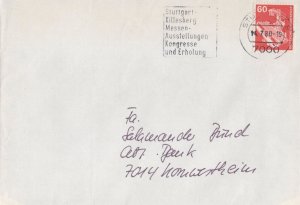 Stuttgart
Killesberg
Messen-
Ausstellungen
Kongresse
und Erholung
60
7000
Fa.
Salamander Bund
abt. Bank
7014 Kornwestheim